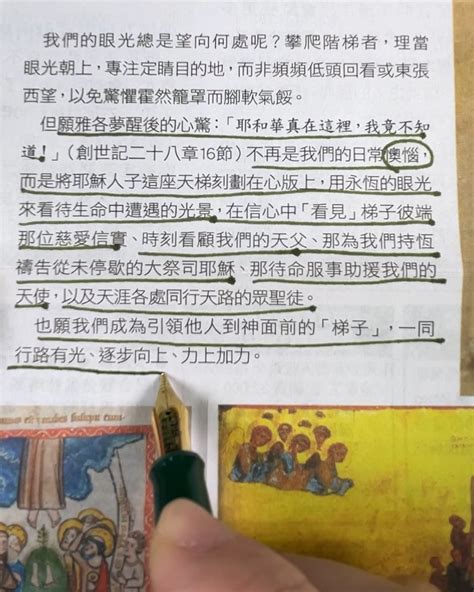 我們的眼光總是望向何處呢？攀爬階梯者，理當
眼光朝上，專注定睛目的地，而非頻頻低頭回看或東張
西望，以免驚懼霍然籠罩而腳軟氣餒。
但願雅各夢醒後的心驚：「耶和華真在這裡，我竟不知
道！」（創世記二十八章16節）不再是我們的日常懊惱，
而是將耶穌人子這座天梯刻劃在心版上，用永恆的眼光
來看待生命中遭遇的光景，在信心中「看見」梯子彼端
那位慈愛信實、時刻看顧我們的天父、那為我們持恆
禱告從未停歇的大祭司耶穌、那待命服事助援我們的
天使，以及天涯各處同行天路的眾聖徒。
也願我們成為引領他人到神面前的「梯子」，一同
行路有光、逐步向上、力上加力。